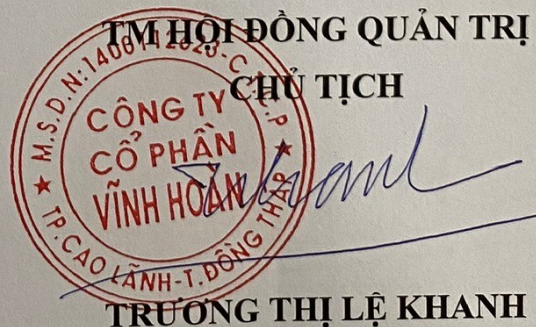 TM HỘI ĐỒNG QUẢN TRỊ
CHỦ TỊCH
M.S.D.N:1400112623-C.T.C.P
CÔNG TY
CỔ PHẦN
VĨNH HOÀN
TP.CAO LÃNH-T.ĐỒNG THÁP
TRƯƠNG THỊ LỆ KHANH